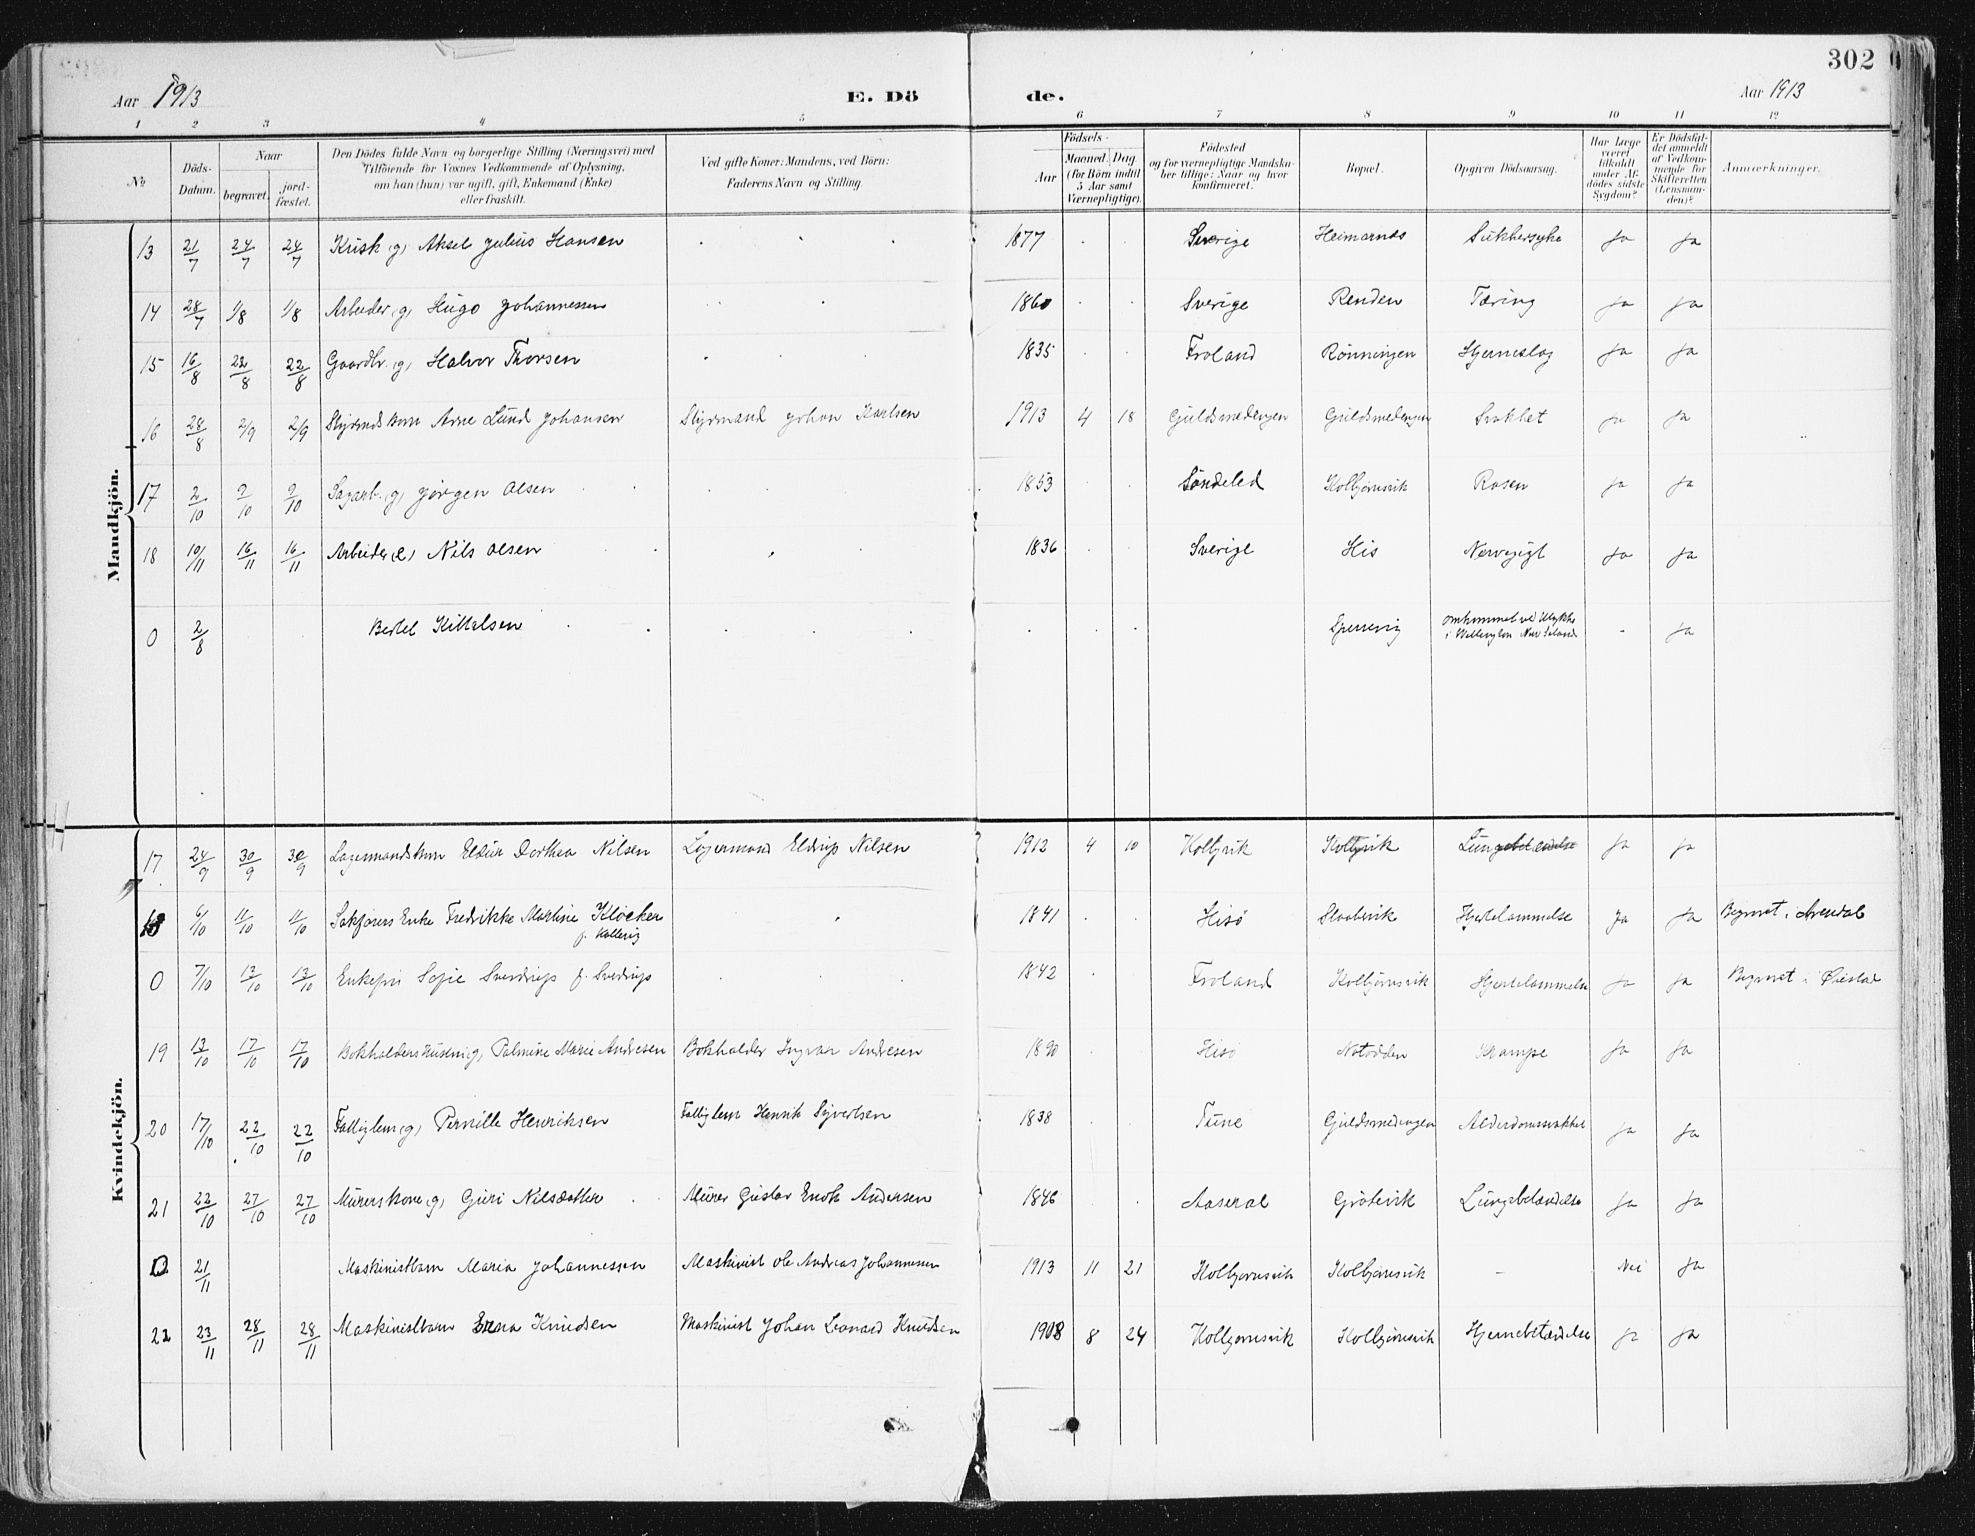 302
Aar 1913 E. Dö de. Aar 1913
1 2 3 4 5 6 7 8 9 10 11 12
No
Döds-Datum.
Naar begravet. jordfæstet.
Den Dödes fulde Navn og borgerlige Stilling (Næringsvei) med
Tilföiende for Voxnes Vedkommende af Oplysning,
om han (hun) var ugift, gift, Enkemand (Enke)
eller fraskilt.
Ved gifte Koner: Mandens, ved Börn:
Faderens Navn og Stilling.
Födsels-
Aar
Maaned. Dag.
(for Börn indtil 5 Aar samt Værnepligtige).
Födested
og for værnepligtige Mandskaber tillige: Naar og hvor konfirmeret.
Bopæl.
Opgiven Dödsaarsag.
Har Læge været tilkaldt under Afdödes sidste Sygdom?
Er Dödsfaldet anmeldt af Vedkommende for Skifteretten (Lensmanden)?
Anmærkninger.
Mandkjön.
13 21/7 24/7 24/7 Krisk (g) Aksel Julius Hansen 1877 Sverige Heimarnes Sukkersyke Ja Ja
14 28/7 1/8 1/8 Arbeider (g) Hugo Johannessen 1860 Sverige Renden Tæring Ja Ja
15 16/8 22/8 22/8 Gaardbr. (g) Halvor Thorsen 1835 Froland Rönningen Hjerneslag Ja Ja
16 28/8 2/9 2/9 Styrmds Barn Arne Lund Johansen Styrmand Johan Karlsen 1913 4 18 Guldsmedengen Guldsmedengen Svakhet Ja Ja
17 2/10 9/10 9/10 Sagarb. (g) Jörgen Olsen 1853 Söndeled Kolbjørnsvik Rosen Ja Ja
18 10/11 16/11 16/11 Arbeider (e) Nils Olsen 1836 Sverige His Nervegigt Ja Ja
0 2/8 Bertel Kittelsen Sperrevig omkommet ved Ulykke i Wellington New Seland - Ja
Kvindekjön.
17 24/9 30/9 30/9 Lagermandsbarn Eldur Dorthea Nilsen Lagermand Eldrup Nilsen 1912 4 10 Kolbjvik Kolbjvik Lungebetændelse Ja Ja
18 6/10 11/10 11/10 Sakførers Enke Fredrikke Martine Kløcker f. Kallevig 1841 Hisö Skarbvik Hjertelammelse Ja Ja Begravet i Arendal
0 7/10 13/10 13/10 Enkefru Sofie Sverdrup f. Sverdrup 1842 Froland Kolbjørnsvik Hjertelammelse Ja Ja Begravet i Øiestad
19 13/10 17/10 17/10 Bokholders Hustru (g) Palmine Marie Andresen Bokholder Ingvar Andresen 1890 Hisö Notodden Krampe Ja Ja
20 17/10 22/10 22/10 Fattiglem (g) Pernille Henriksen Fattiglem Henrik Syvertsen 1838 Tune Guldsmedengen Alderdomssvakhet Ja Ja
21 22/10 27/10 27/10 Murerskone (g) Guri Nilsdatter Murer Gustav Enok Andersen 1846 Aaseral Grötevik Lungebetændelse Ja Ja
0 21/11 Maskinistbarn Maria Johannessen Maskinist Ole Andreas Johannessen 1913 11 21 Kolbjørnsvik Kolbjørnsvik - Nei Ja
22 23/11 28/11 28/11 Maskinistbarn Erna Knudsen Maskinist Johan Leonard Knudsen 1908 8 24 Kolbjørnsvik Kolbjørnsvik Hjernebetændelse Ja Ja